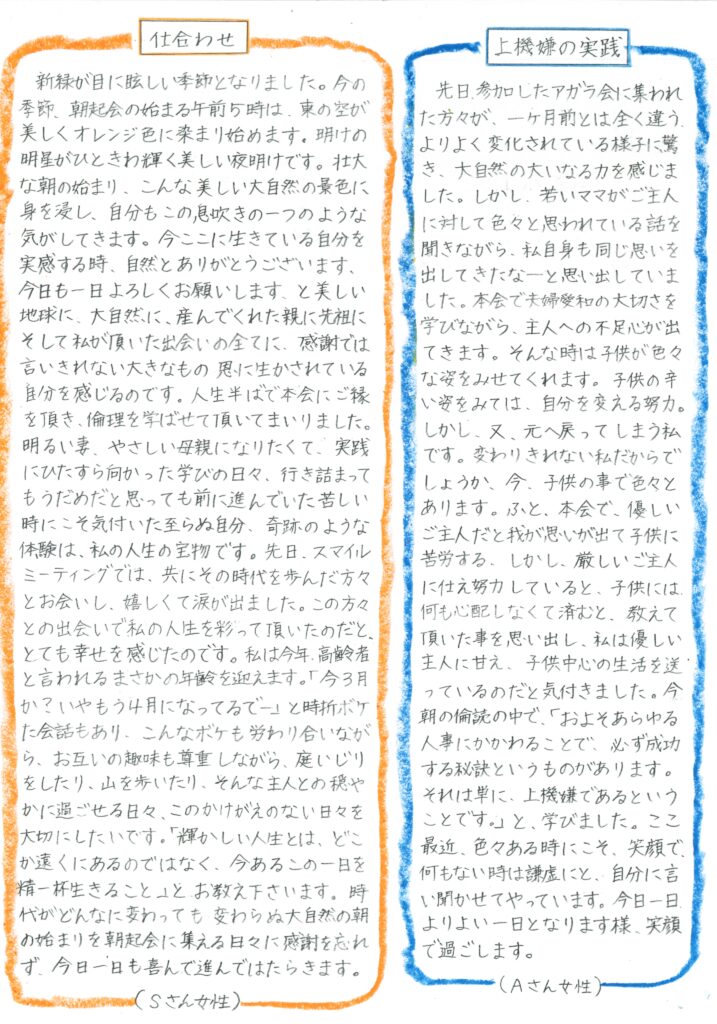 仕合わせ
新緑が目に眩しい季節となりました。今の
季節、朝起会の始まる午前5時は、東の空が
美しくオレンジ色に染まり始めます。明けの
明星がひときわ輝く美しい夜明けです。壮大
な朝の始まり、こんな美しい大自然の景色に
身を浸し、自分もこの息吹きの一つのような
気がしてきます。今ここに生きている自分を
実感する時、自然とありがとうございます、
今日も一日よろしくお願いします、と美しい
地球に、大自然に、産んでくれた親に先祖に
そして私が頂いた出会いの全てに、感謝では
言いきれない大きなもの 恩に生かされている
自分を感じるのです。人生半ばで本会にご縁
を頂き、倫理を学ばせて頂いてまいりました。
明るい妻、やさしい母親になりたくて、実践
にひたすら向かった学びの日々、行き詰まって
もうだめだと思っても前に進んでいた苦しい
時にこそ気付いた至らぬ自分、奇跡のような
体験は、私の人生の宝物です。先日、スマイル
ミーティングでは、共にその時代を歩んだ方々
とお会いし、嬉しくて涙が出ました。この方々
との出会いで私の人生を彩って頂いたのだと、
とても幸せを感じたのです。私は今年、高齢者
と言われるまさかの年齢を迎えます。「今3月
か？いやもう4月になってるでー」と時折ボケ
た会話もあり、こんなボケも労わり合いなが
ら、お互いの趣味も尊重しながら、庭いじり
をしたり、山を歩いたり、そんな主人との穏や
かに過ごせる日々、このかけがえのない日々を
大切にしたいです。「輝かしい人生とは、どこ
か遠くにあるのではなく、今あるこの一日を
精一杯生きること」と、お教え下さいます。時
代がどんなに変わっても 変わらぬ大自然の朝
の始まりを朝起会に集える日々に感謝を忘れ
ず、今日一日も喜んで進んではたらきます。
(Sさん女性)
上機嫌の実践
先日、参加したアガラ会に集われ
た方々が、一ヶ月前とは全く違う、
よりよく変化されている様子に驚
き、大自然の大いなる力を感じま
した。しかし、若いママがご主人
に対して色々と思われている話を
聞きながら、私自身も同じ思いを
出してきたなーと思い出していま
した。本会で夫婦愛和の大切さを
学びながら、主人への不足心が出
てきます。そんな時は子供が色々
な姿をみせてくれます。子供の辛
い姿をみては、自分を変える努力。
しかし、又、元へ戻ってしまう私
です。変わりきれない私だからで
しょうか、今、子供の事で色々と
あります。ふと、本会で、優しい
ご主人だと我が思いが出て子供に
苦労する、しかし、厳しいご主人
に仕え努力していると、子供には、
何も心配しなくて済むと、教えて
頂いた事を思い出し、私は優しい
主人に甘え、子供中心の生活を送
っているのだと気付きました。今
朝の倫読の中で、「およそあらゆる
人事にかかわることで、必ず成功
する秘訣というものがあります。
それは単に、上機嫌であるという
ことです。」と、学びました。ここ
最近、色々ある時にこそ、笑顔で、
何もない時は謙虚にと、自分に言
い聞かせてやっています。今日一日、
よりよい一日となります様、笑顔
で過ごします。
(Aさん女性)